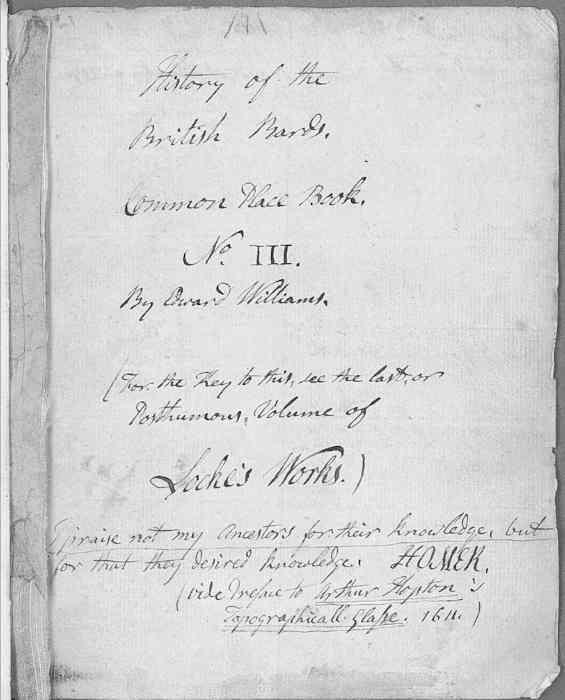 History of the
British Bards.
Common Place Book.
No. III.
By Edward Williams.
(For the Key to this, see the last, or
Posthumous, Volume of
Locke's Works.)
I praise not my Ancestors for their knowledge, but
for that they desired knowledge. HOMER.
(vide Preface to Arthur Hopton's
Topographicall Glaſse. 1611.)